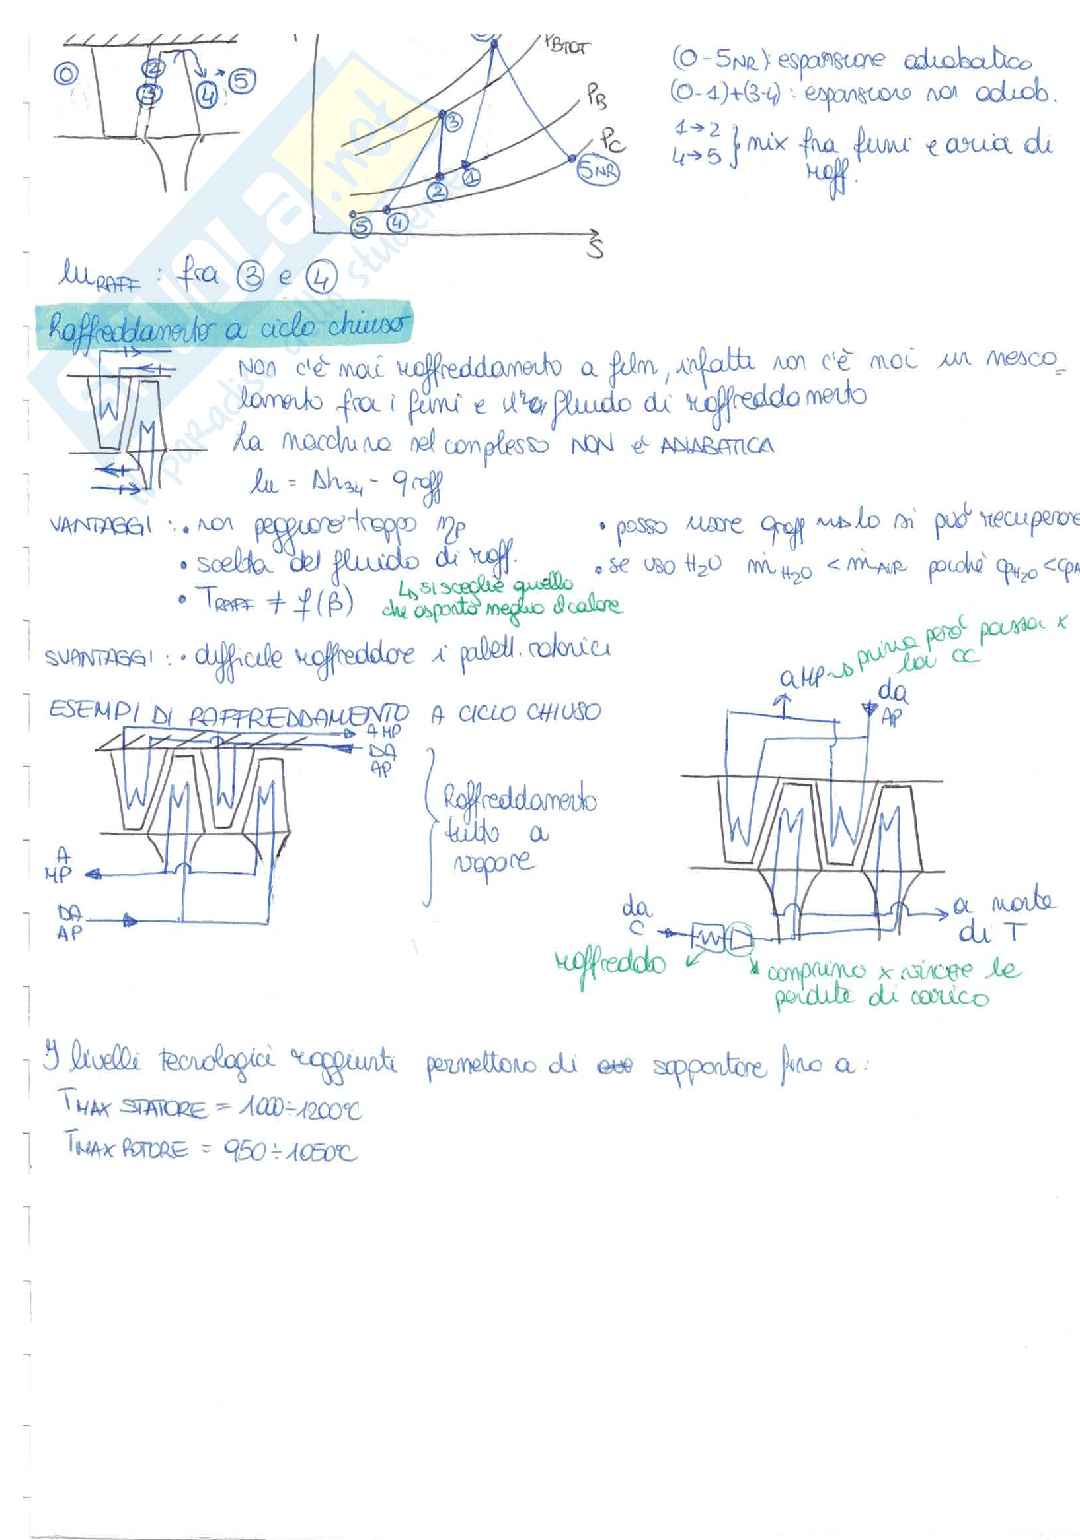 0
2
3
4
5
PBTOT
PB
PC
3
2
1
5NR
5
4
S
(0-5NR): espansione adiabatica
(0-1)+(3-4): espansione non adiab.
1→2
4→5 } mix fra fumi e aria di
raff.
luRAFF : fra 3 e 4
Raffreddamento a ciclo chiuso
Non c'è mai raffreddamento a film, infatti non c'è mai un mesco-
lamento fra i fumi e il fluido di raffreddamento
La macchina nel complesso NON è ADIABATICA
lu = Δh34 - qraff
VANTAGGI : • non peggiora troppo ηp
• scelta del fluido di raff.
↳ si sceglie quello
che asporta meglio il calore
• TRAFF ≠ f(β)
• posso usare qraff si può recuperare
• se uso H2O ṁH2O < ṁAIR perché cpH2O < cpA
SVANTAGGI : • difficile raffreddare i palett. rotorici
ESEMPI DI RAFFREDDAMENTO A CICLO CHIUSO
A MP
DA
AP
A
MP
DA
AP
Raffreddamento
tutto a
vapore
a MP → prima però passa x
la CC
da
AP
da
C
a monte
di T
raffreddo
comprimo x vincere le
perdite di carico
I livelli tecnologici raggiunti permettono di sopportare fino a:
TMAX STATORE = 1000÷1200°C
TMAX ROTORE = 950÷1050°C
SKUOLA.net
il paradiso dello studente